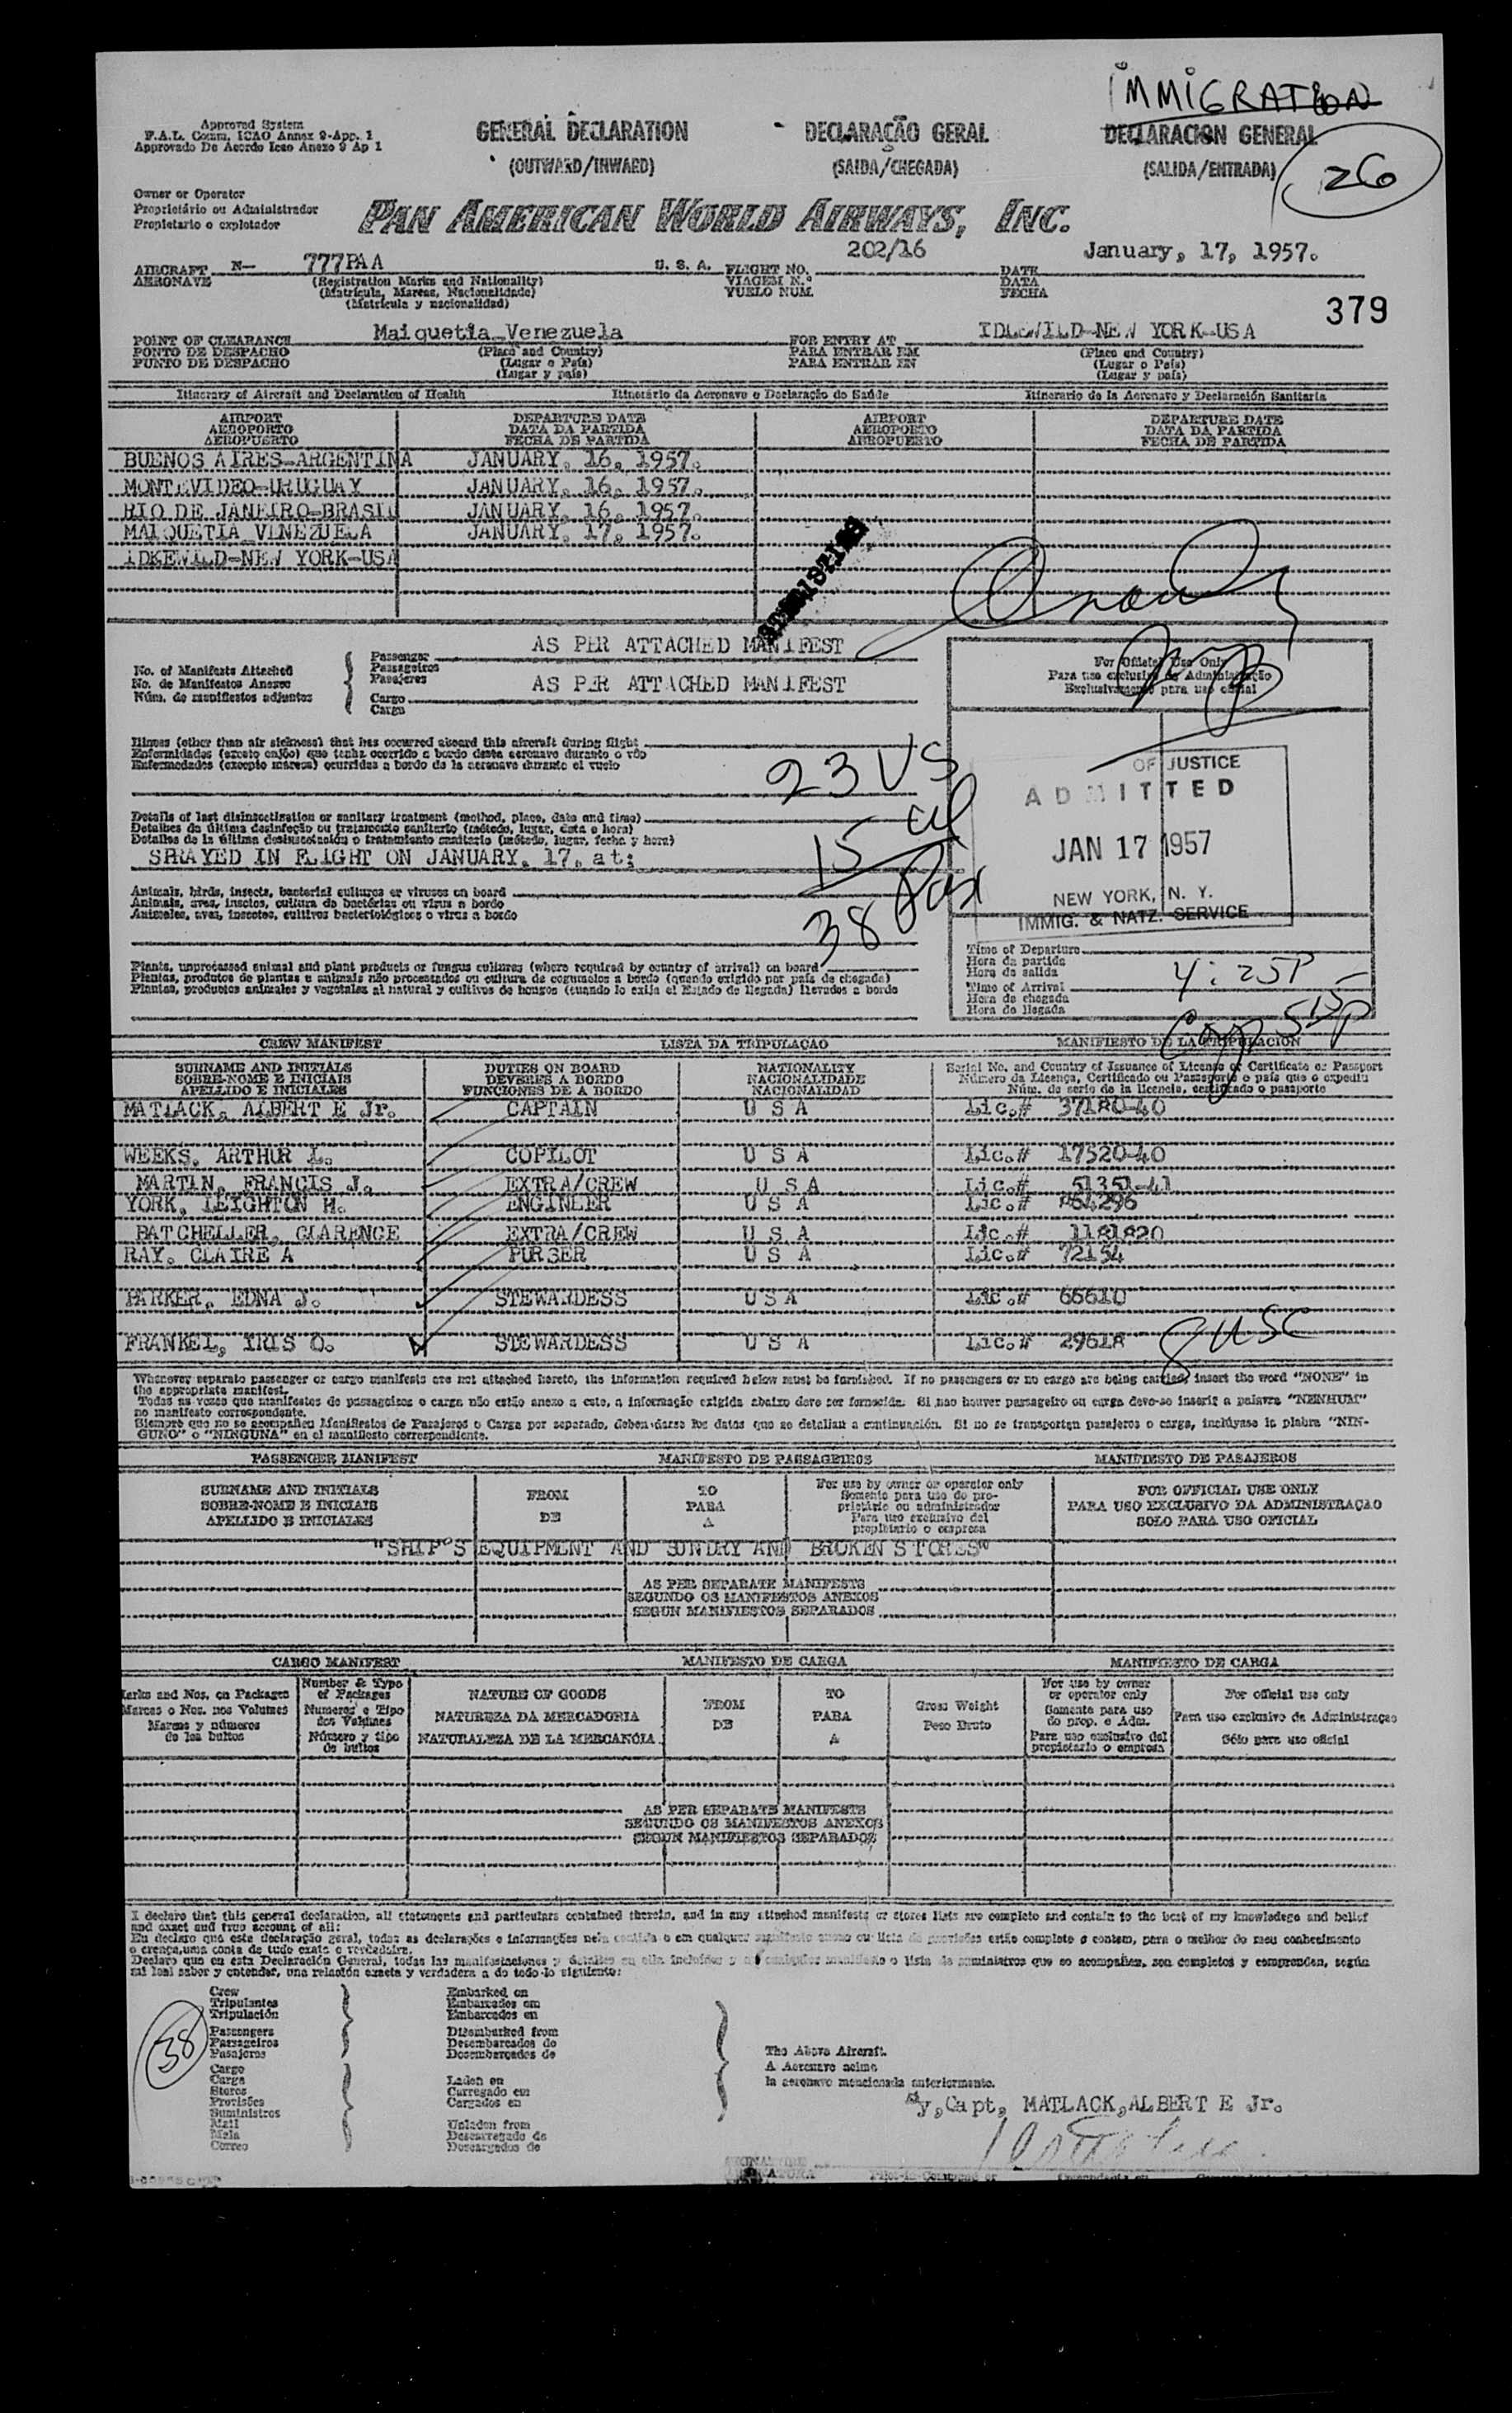 IMMIGRATION
Approved System
F.A.L. Comm. ICAO Annex 9-App. 1
Approvado De Acordo Icao Anexo 9 Ap 1
GENERAL DECLARATION
(OUTWARD/INWARD)
DECLARAÇÃO GERAL
(SAIDA/CHEGADA)
DECLARACION GENERAL
(SALIDA/ENTRADA)
26
Owner or Operator
Proprietário ou Administrador
Propietario o explotador
PAN AMERICAN WORLD AIRWAYS, INC.
AIRCRAFT N— 777PAA U. S. A.
AERONAVE
(Registration Marks and Nationality)
(Matrícula, Marcas, Nacionalidade)
(Matrícula y nacionalidad)
FLIGHT NO. 202/16
VIAGEM N.º
VUELO NUM.
DATE January, 17, 1957.
DATA
FECHA
379
POINT OF CLEARANCE Maiquetia Venezuela
PONTO DE DESPACHO
PUNTO DE DESPACHO
(Place and Country)
(Lugar o País)
(Lugar y país)
FOR ENTRY AT IDLEWILD-NEW YORK-USA
PARA ENTRAR EM
PARA ENTRAR EN
(Place and Country)
(Lugar o País)
(Lugar y país)
Itinerary of Aircraft and Declaration of Health
Itinerário da Aeronave e Declaração de Saúde
Itinerario de la Aeronave y Declaración Sanitaria
AIRPORT
AEROPORTO
AEROPUERTO
DEPARTURE DATE
DATA DA PARTIDA
FECHA DE PARTIDA
AIRPORT
AEROPORTO
AEROPUERTO
DEPARTURE DATE
DATA DA PARTIDA
FECHA DE PARTIDA
BUENOS AIRES-ARGENTINA JANUARY, 16, 1957.
MONTEVIDEO-URUGUAY JANUARY, 16, 1957.
RIO DE JANEIRO-BRASIL JANUARY, 16, 1957.
MAIQUETIA VENEZUELA JANUARY, 17, 1957.
IDKEWILD-NEW YORK-USA
No. of Manifests Attached
No. de Manifestos Anexos
Núm. de manifiestos adjuntos
Passenger AS PER ATTACHED MANIFEST
Passageiros
Pasajeros
AS PER ATTACHED MANIFEST
Cargo
Carga
For Official Use Only
Para uso exclusivo da Administação
Exclusivamente para uso oficial
Illness (other than air sickness) that has occurred aboard this aircraft during flight
Enfermidades (exceto enjôo) que tenha ocorrido a bordo desta aeronave durante o vôo
Enfermedades (excepto mareos) ocurridas a bordo de la aeronave durante el vuelo
23 US
15 al
38 Pax
OF JUSTICE
ADMITTED
JAN 17 1957
NEW YORK, N. Y.
IMMIG. & NATZ. SERVICE
Details of last disinsectisation or sanitary treatment (method, place, date and time)
Detalhes da última desinfeção ou tratamento sanitario (método, lugar, data e hora)
Detalles de la última desinsectación o tratamiento sanitario (método, lugar, fecha y hora)
SPRAYED IN FLIGHT ON JANUARY, 17, at:
Animals, birds, insects, bacterial cultures or viruses on board
Animais, aves, insetos, cultura de bactérias ou virus a bordo
Animales, aves, insectos, cultivos bacteriológicos o virus a bordo
Plants, unprocessed animal and plant products or fungus cultures (where required by country of arrival) on board
Plantas, produtos de plantas e animais não processados ou cultura de cogumelos a bordo (quando exigido por país de chegada)
Plantas, productos animales y vegetales al natural y cultivos de hongos (cuando lo exija el Estado de llegada) llevados a bordo
Time of Departure
Hora da partida
Hora de salida
Time of Arrival 4:25P
Hora de chegada
Hora de llegada
515P
CREW MANIFEST
LISTA DA TRIPULAÇÃO
MANIFIESTO DE LA TRIPULACION
SURNAME AND INITIALS
SOBRE-NOME E INICIAIS
APELLIDO E INICIALES
DUTIES ON BOARD
DEVERES A BORDO
FUNCIONES DE A BORDO
NATIONALITY
NACIONALIDADE
NACIONALIDAD
Serial No. and Country of Issuance of License or Certificate or Passport
Número da Licença, Certificado ou Passaporte o país que o expediu
Núm. de serie de la licencia, certificado o passporte
MATLACK, ALBERT E Jr. CAPTAIN U S A Lic.# 37180-40
WEEKS, ARTHUR L. COPILOT U S A Lic.# 17520-40
MARTIN, FRANCIS J. EXTRA/CREW U S A Lic.# 51351-41
YORK, LEIGHTON H. ENGINEER U S A Lic.#
BATCHELLER, CLARENCE EXTRA/CREW U S A Lic.# 1181820
RAY, CLAIRE A PURSER U S A Lic.# 72154
PARKER, EDNA J. STEWARDESS U S A Lic.# 66610
FRANKEL, IRIS O. STEWARDESS U S A Lic.# 29618
8 USC
Whenever separate passenger or cargo manifests are not attached hereto, the information required below must be furnished. If no passengers or no cargo are being carried, insert the word "NONE" in
the appropriate manifest.
Todas as vezes que manifestos de passageiros o carga não estão anexo a este, a informação exigida abaixo deve ser fornecida. Si nao houver passageiro ou carga deve-se inserir a palavra "NENHUM"
no manifesto correspondente.
Siempre que no se acompañen Manifiestos de Pasajeros o Carga por separado, deben darse los datos que se detallan a continuación. Si no se transportan pasajeros o carga, inclúyase la plabra "NIN-
GUNO" o "NINGUNA" en el manifiesto correspondiente.
PASSENGER MANIFEST
MANIFESTO DE PASSAGEIROS
MANIFIESTO DE PASAJEROS
SURNAME AND INITIALS
SOBRE-NOME E INICIAIS
APELLIDO E INICIALES
FROM
DE
TO
PARA
A
For use by owner or operator only
Somente para uso do pro-
prietário ou administrador
Para uso exclusivo del
propietario o empresa
FOR OFFICIAL USE ONLY
PARA USO EXCLUSIVO DA ADMINISTRAÇÃO
SOLO PARA USO OFICIAL
"SHIP'S EQUIPMENT AND SUNDRY AND BROKEN STORES"
AS PER SEPARATE MANIFESTS
SEGUNDO OS MANIFESTOS ANEXOS
SEGUN MANIFIESTOS SEPARADOS
CARGO MANIFEST
MANIFESTO DE CARGA
MANIFIESTO DE CARGA
Marks and Nos. on Packages
Marcas o Nos. nos Volumes
Marcas y números
de los bultos
Number & Type
of Packages
Numeros e Tipo
dos Volumes
Número y tipo
de bultos
NATURE OF GOODS
NATUREZA DA MERCADORIA
NATURALEZA DE LA MERCANCIA
FROM
DE
TO
PARA
A
Gross Weight
Peso Bruto
For use by owner
or operator only
Somente para uso
do prop. e Adm.
Para uso exclusivo del
propietario o empresa
For official use only
Para uso exclusivo da Administraçao
Sólo para uso oficial
AS PER SEPARATE MANIFESTS
SEGUNDO OS MANIFESTOS ANEXOS
SEGUN MANIFIESTOS SEPARADOS
I declare that this general declaration, all statements and particulars contained therein, and in any attached manifests or stores lists are complete and contain to the best of my knowledege and belief
and exact and true account of all:
Eu declaro que este declaração geral, todas as declarações e informações nela contida o em qualquer manifesto anexo ou lista de provisões estão completo e contem, para o melhor do meu conhecimento
o crença, uma conta de tudo exata e verdadeira.
Declaro que en esta Declaración General, todas las manifestaciones y detalles en ella incluídos y en cualquier manifiesto o lista de suministros que se acompañen, son completos y comprenden, según
mi leal saber y entender, una relación exacta y verdadera a do todo lo siguiente:
38
Crew
Tripulantes
Tripulación
Passengers
Passageiros
Pasajeros
Cargo
Carga
Stores
Provisões
Suministros
Mail
Mala
Correo
Embarked on
Embarcados em
Embarcados en
Disembarked from
Desembarcados de
Desembarcados de
Laden on
Carregado em
Cargados en
Unladen from
Descarregado de
Descargados de
The Above Aircraft.
A Aeronave acima
la aeronave mencionada anteriormente.
By, Capt, MATLACK, ALBERT E Jr.